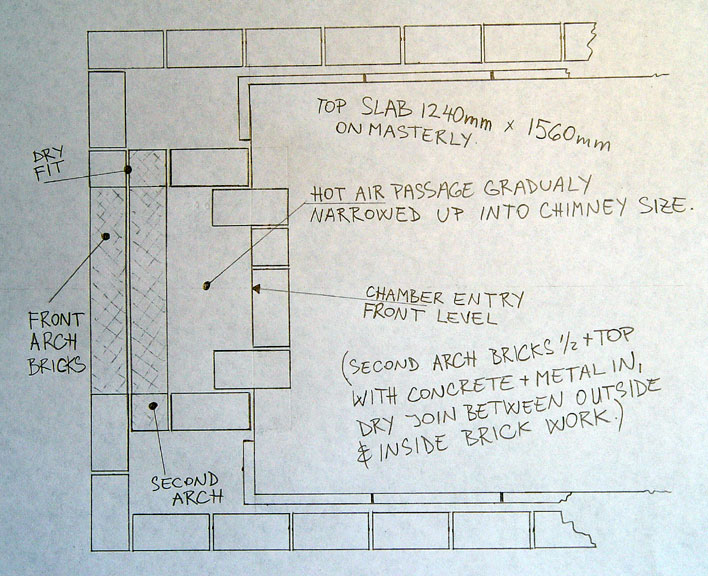 TOP SLAB 1240mm x 1560mm
ON MASTERLY.
DRY
FIT
HOT AIR PASSAGE GRADUALY
NARROWED UP INTO CHIMNEY SIZE.
FRONT
ARCH
BRICKS
CHAMBER ENTRY
FRONT LEVEL
(SECOND ARCH BRICKS 1/2 + TOP
WITH CONCRETE + METAL IN,
DRY JOIN BETWEEN OUTSIDE
& INSIDE BRICK WORK.)
SECOND
ARCH